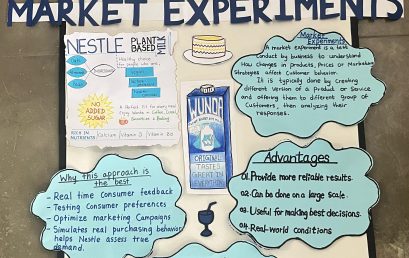 MARKET EXPERIMENTS
NESTLE PLANT BASED MILK
Healthy choice
NO
ADDED
SUGAR
RICH IN NUTRIENTS Calcium Vitamin D Vitamin B2
WUNDA
ORIGINAL
TASTES
GREAT IN
EVERYTHING
Market
Experiments
A market experiment is a test
Conduct by business to understand
How changes in products, Prices or Marketing
Strategies affect Customer behavior.
It is typically done by Creating
different Version of a Product or Service
and offering them to different group of
Customers, then analyzing their
responses.
Why this approach is
the best
- Real time Consumer feedback
- Testing Consumer preferences
- Optimize marketing Campaigns
- Simulates real purchasing behavior
helps Nestle assess true
demand.
Advantages
01. Provide more reliable results.
02. Can be done on a large scale.
03. Useful for making best decisions.
04. Real-world conditions